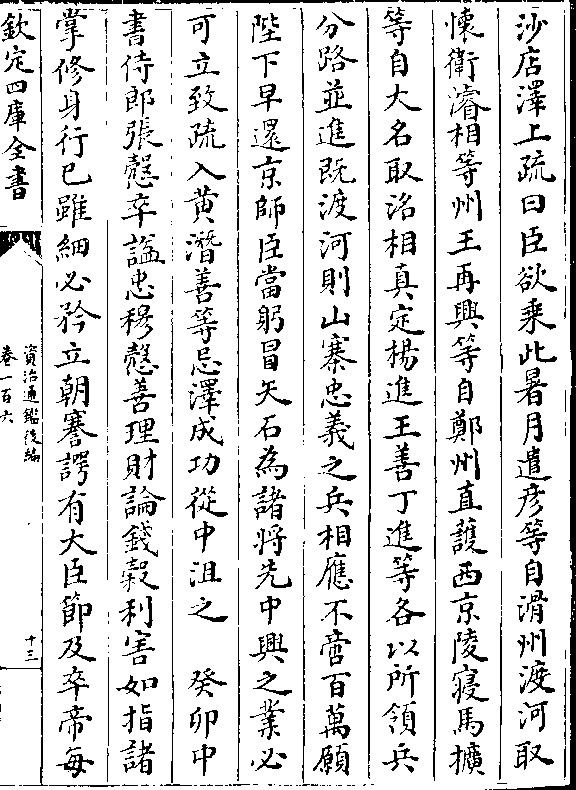 沙店澤上疏曰臣欲乗此暑月遣彦等自滑州渡河取
懐衛濬相等州王再興等自鄭州直䕶西京陵寢馬擴
等自大名取洺相真定楊進王善丁進等各以所領兵
分路並進既渡河則山寨忠義之兵相應不啻百萬願
陛下早還京師臣當躬冒矢石為諸将先中興之業必
可立致疏入黄潛善等忌澤成功從中沮之　癸卯中
書侍郎張慤卒諡忠穆慤善理財論錢榖利害如指諸
掌修身行已雖細必矜立朝謇諤有大臣節及卒帝每
欽定四庫全書
資治通鑑後編
卷一百六
十三